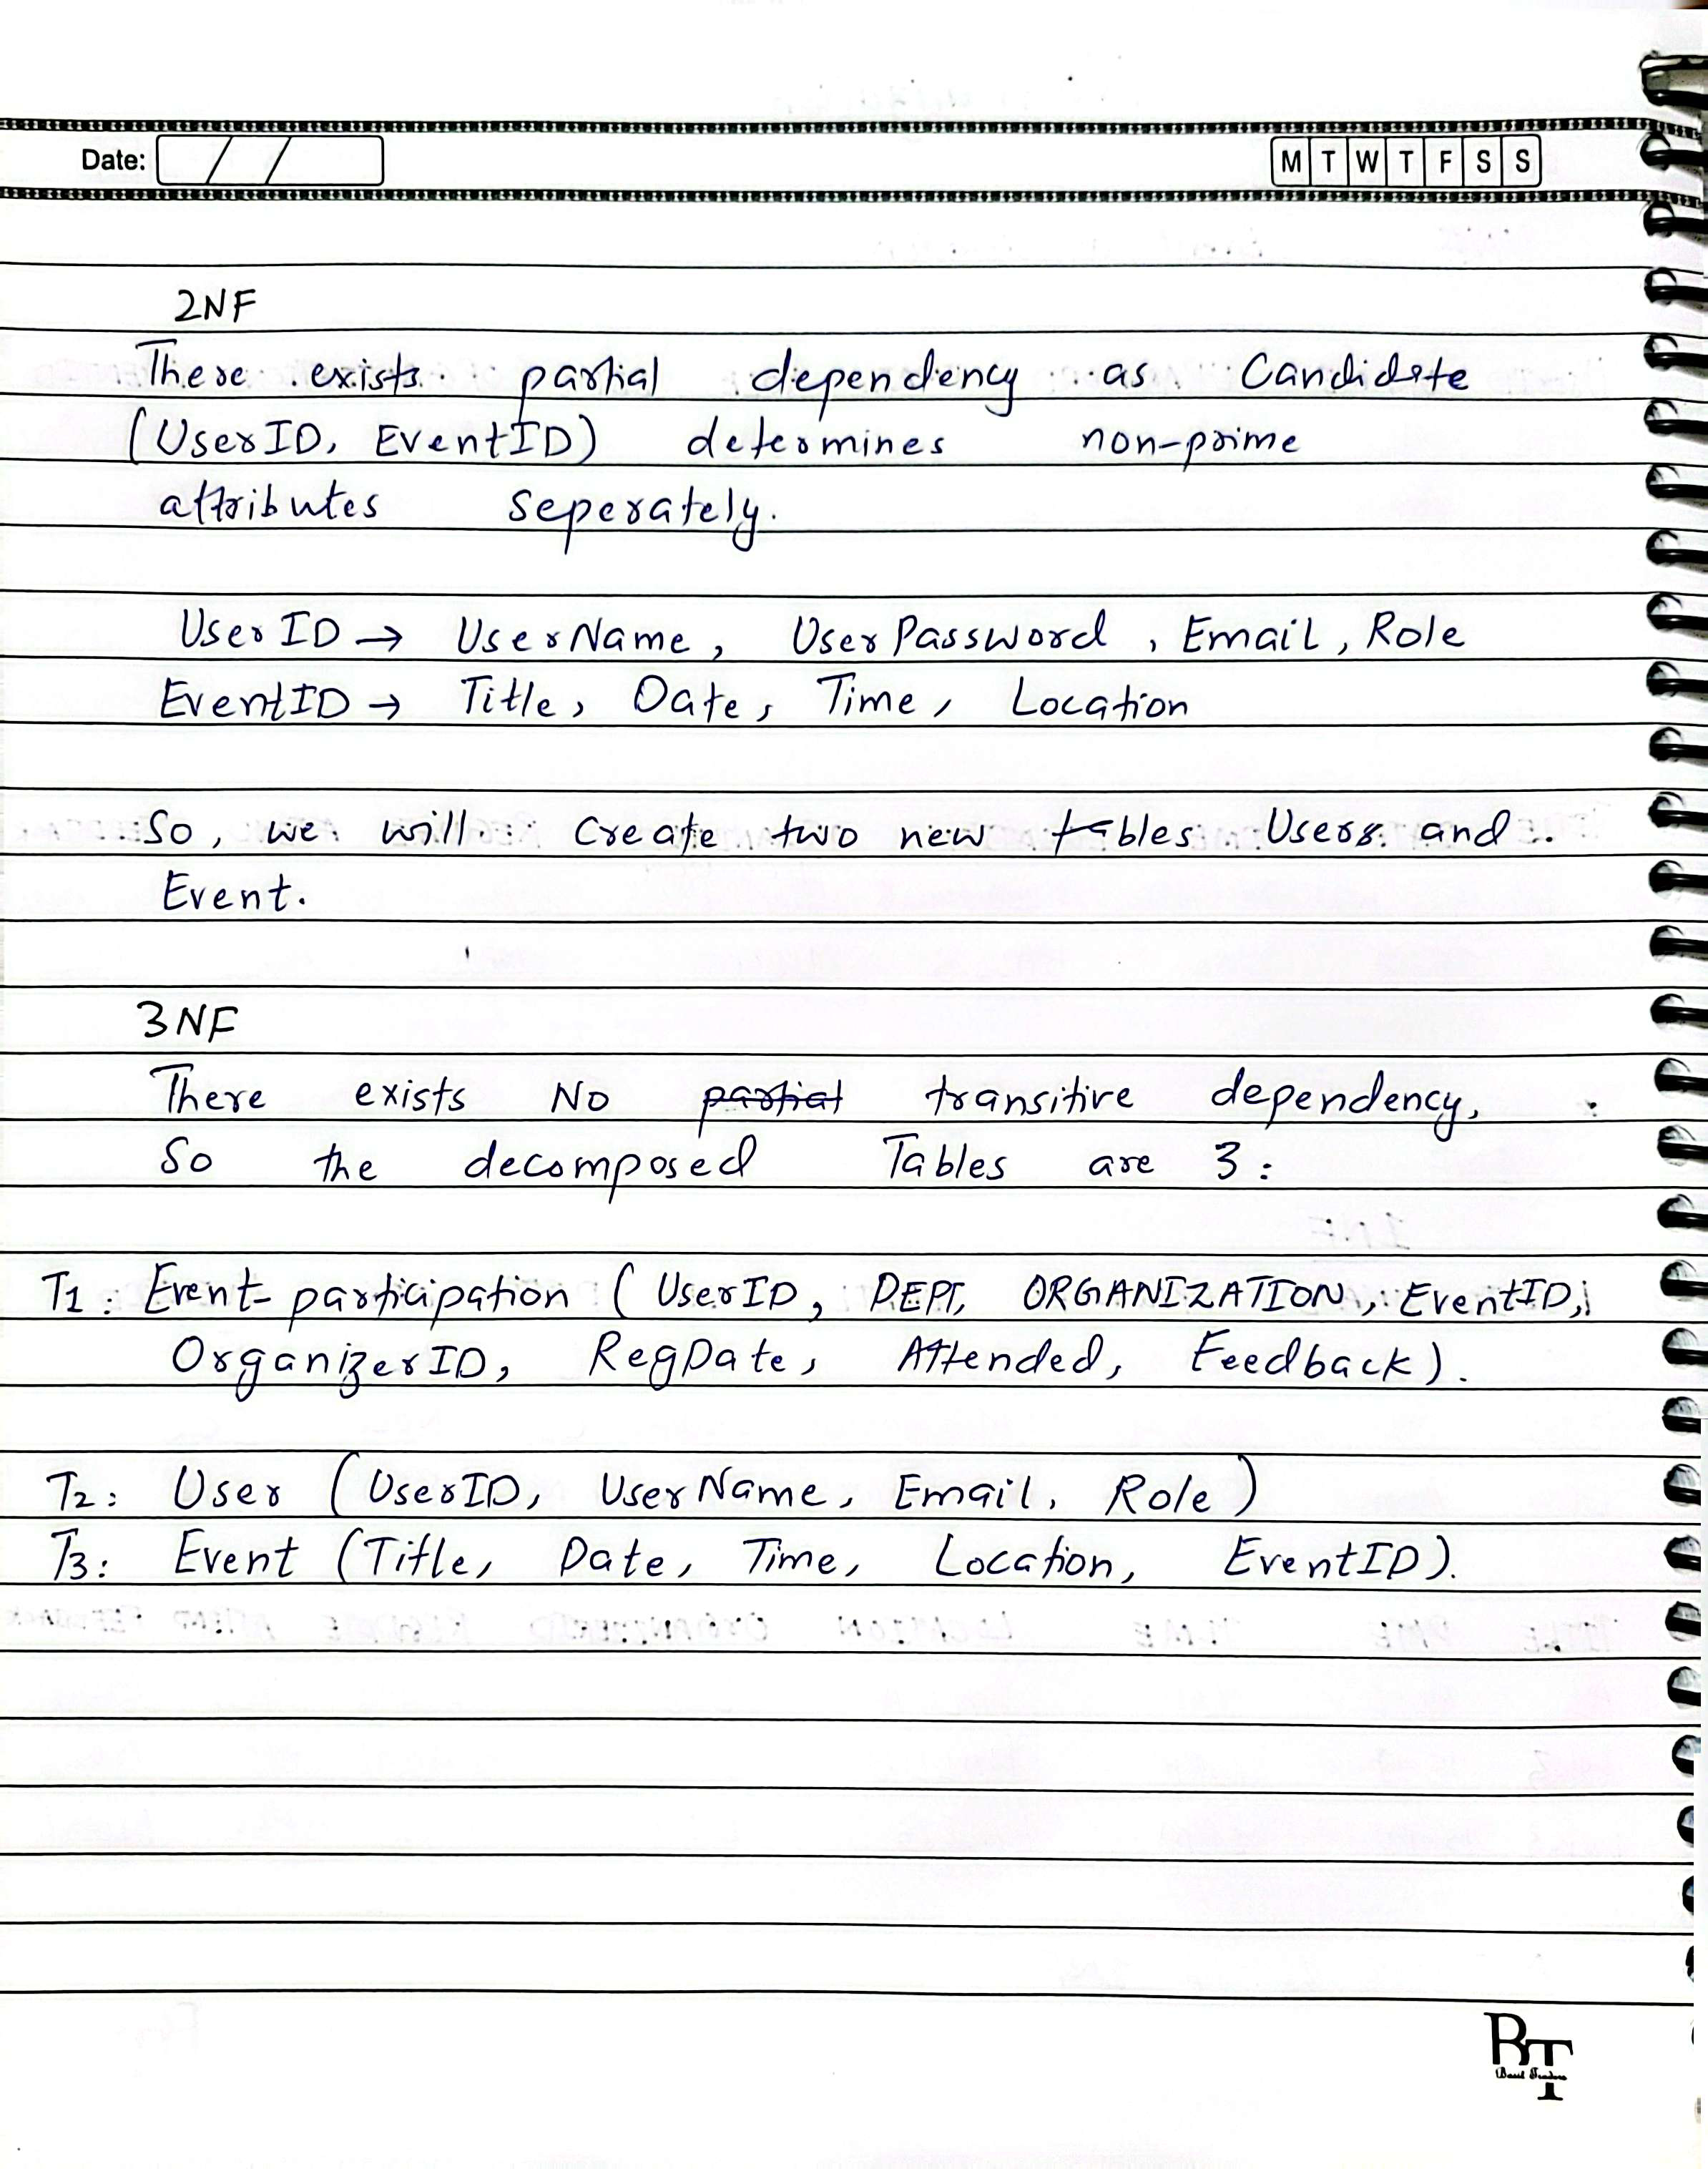 Date: / /
M T W T F S S
2NF
There exists partial dependency as Candidate
(UserID, EventID) determines non-prime
attributes seperately.
UserID → UserName, UserPassword, Email, Role
EventID → Title, Date, Time, Location
So, we will create two new tables Users and
Event.
3NF
There exists No partial transitive dependency,
So the decomposed Tables are 3:
T1: Event-participation (UserID, DEPT, ORGANIZATION, EventID,
OrganizerID, RegDate, Attended, Feedback).
T2: User (UserID, UserName, Email, Role)
T3: Event (Title, Date, Time, Location, EventID).
BT